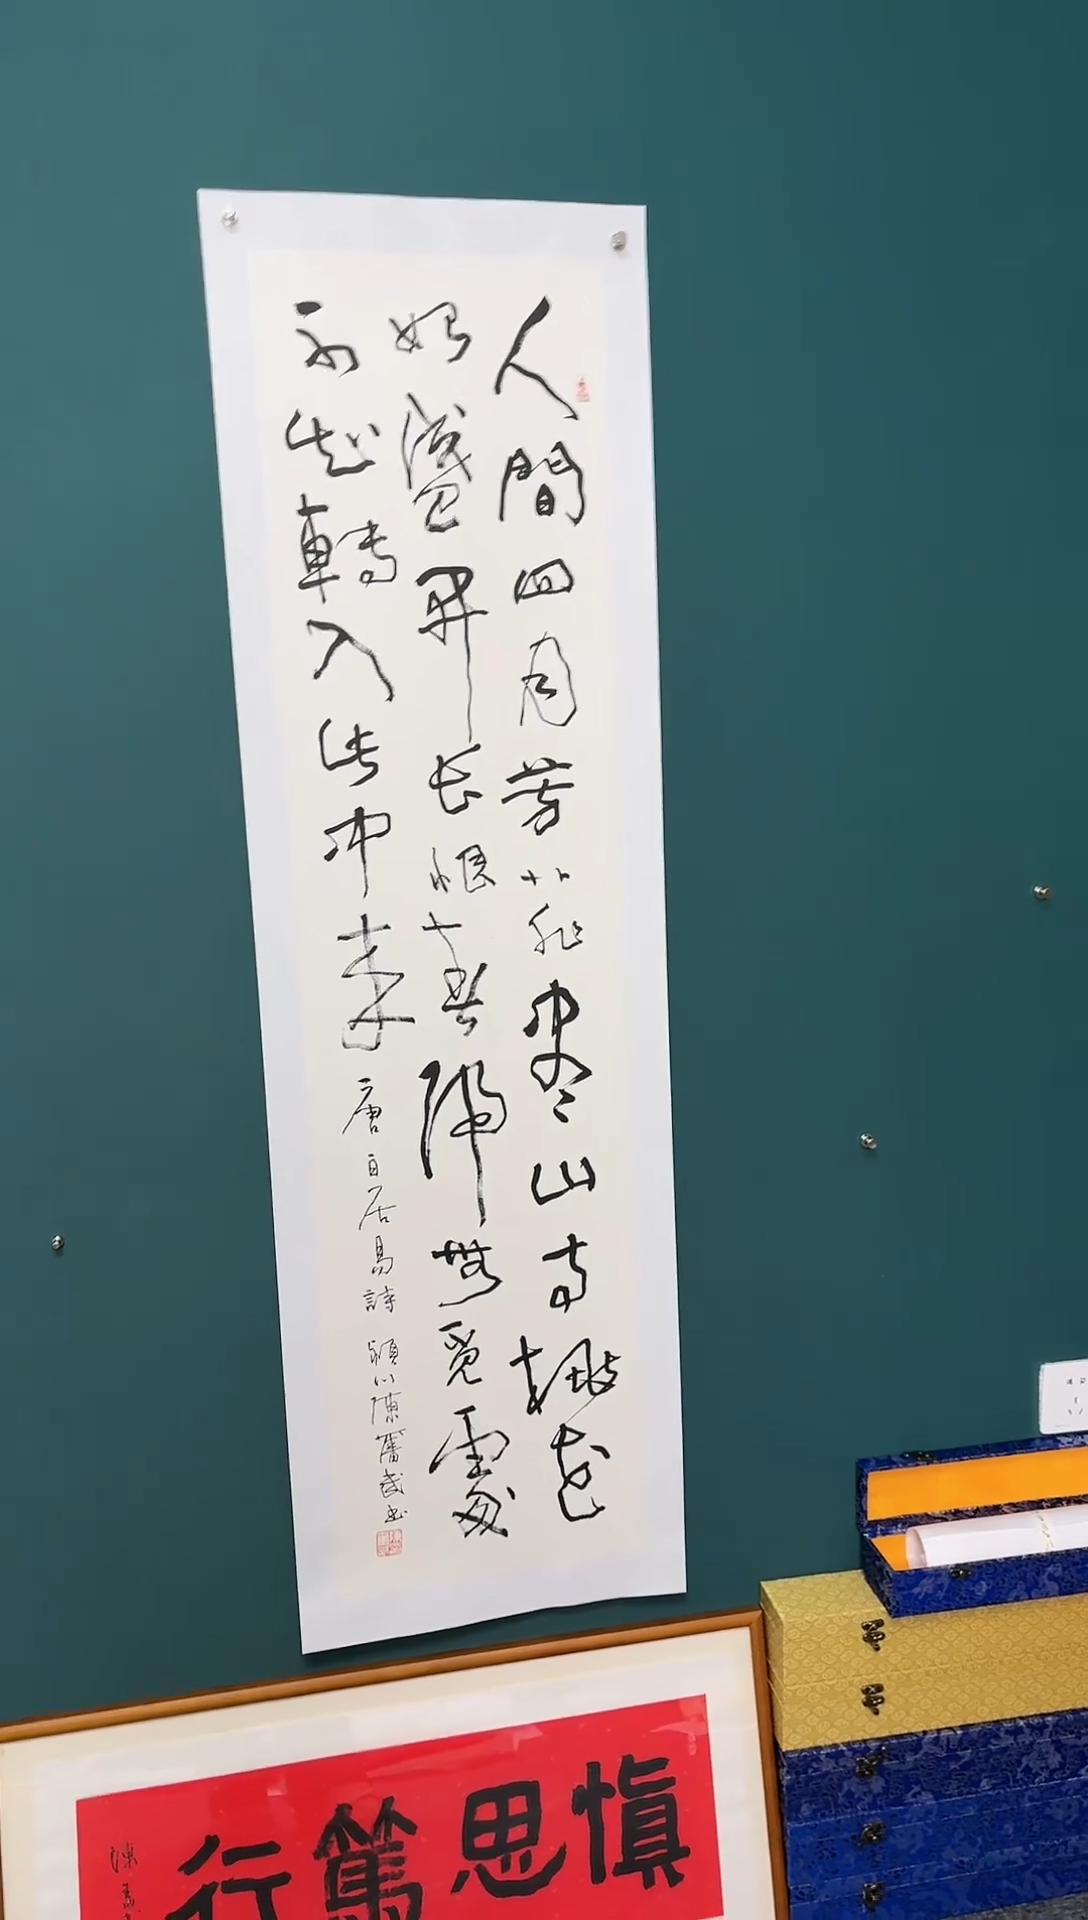 人間四月芳菲盡山寺桃花
始盛開长恨春歸無覓處
不知轉入此中來 唐白居易詩 潁川陳
慎思篤行
陳